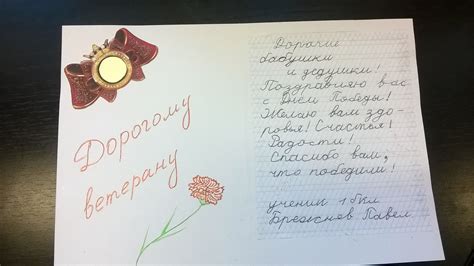 Дорогому
ветерану
Дорогие
бабушки
и дедушки!
Поздравляю вас
с Днём Победы!
Желаю вам здо-
ровья! Счастья!
Радости!
Спасибо вам,
что победили!
ученик 1 б кл
Брежнев Павел